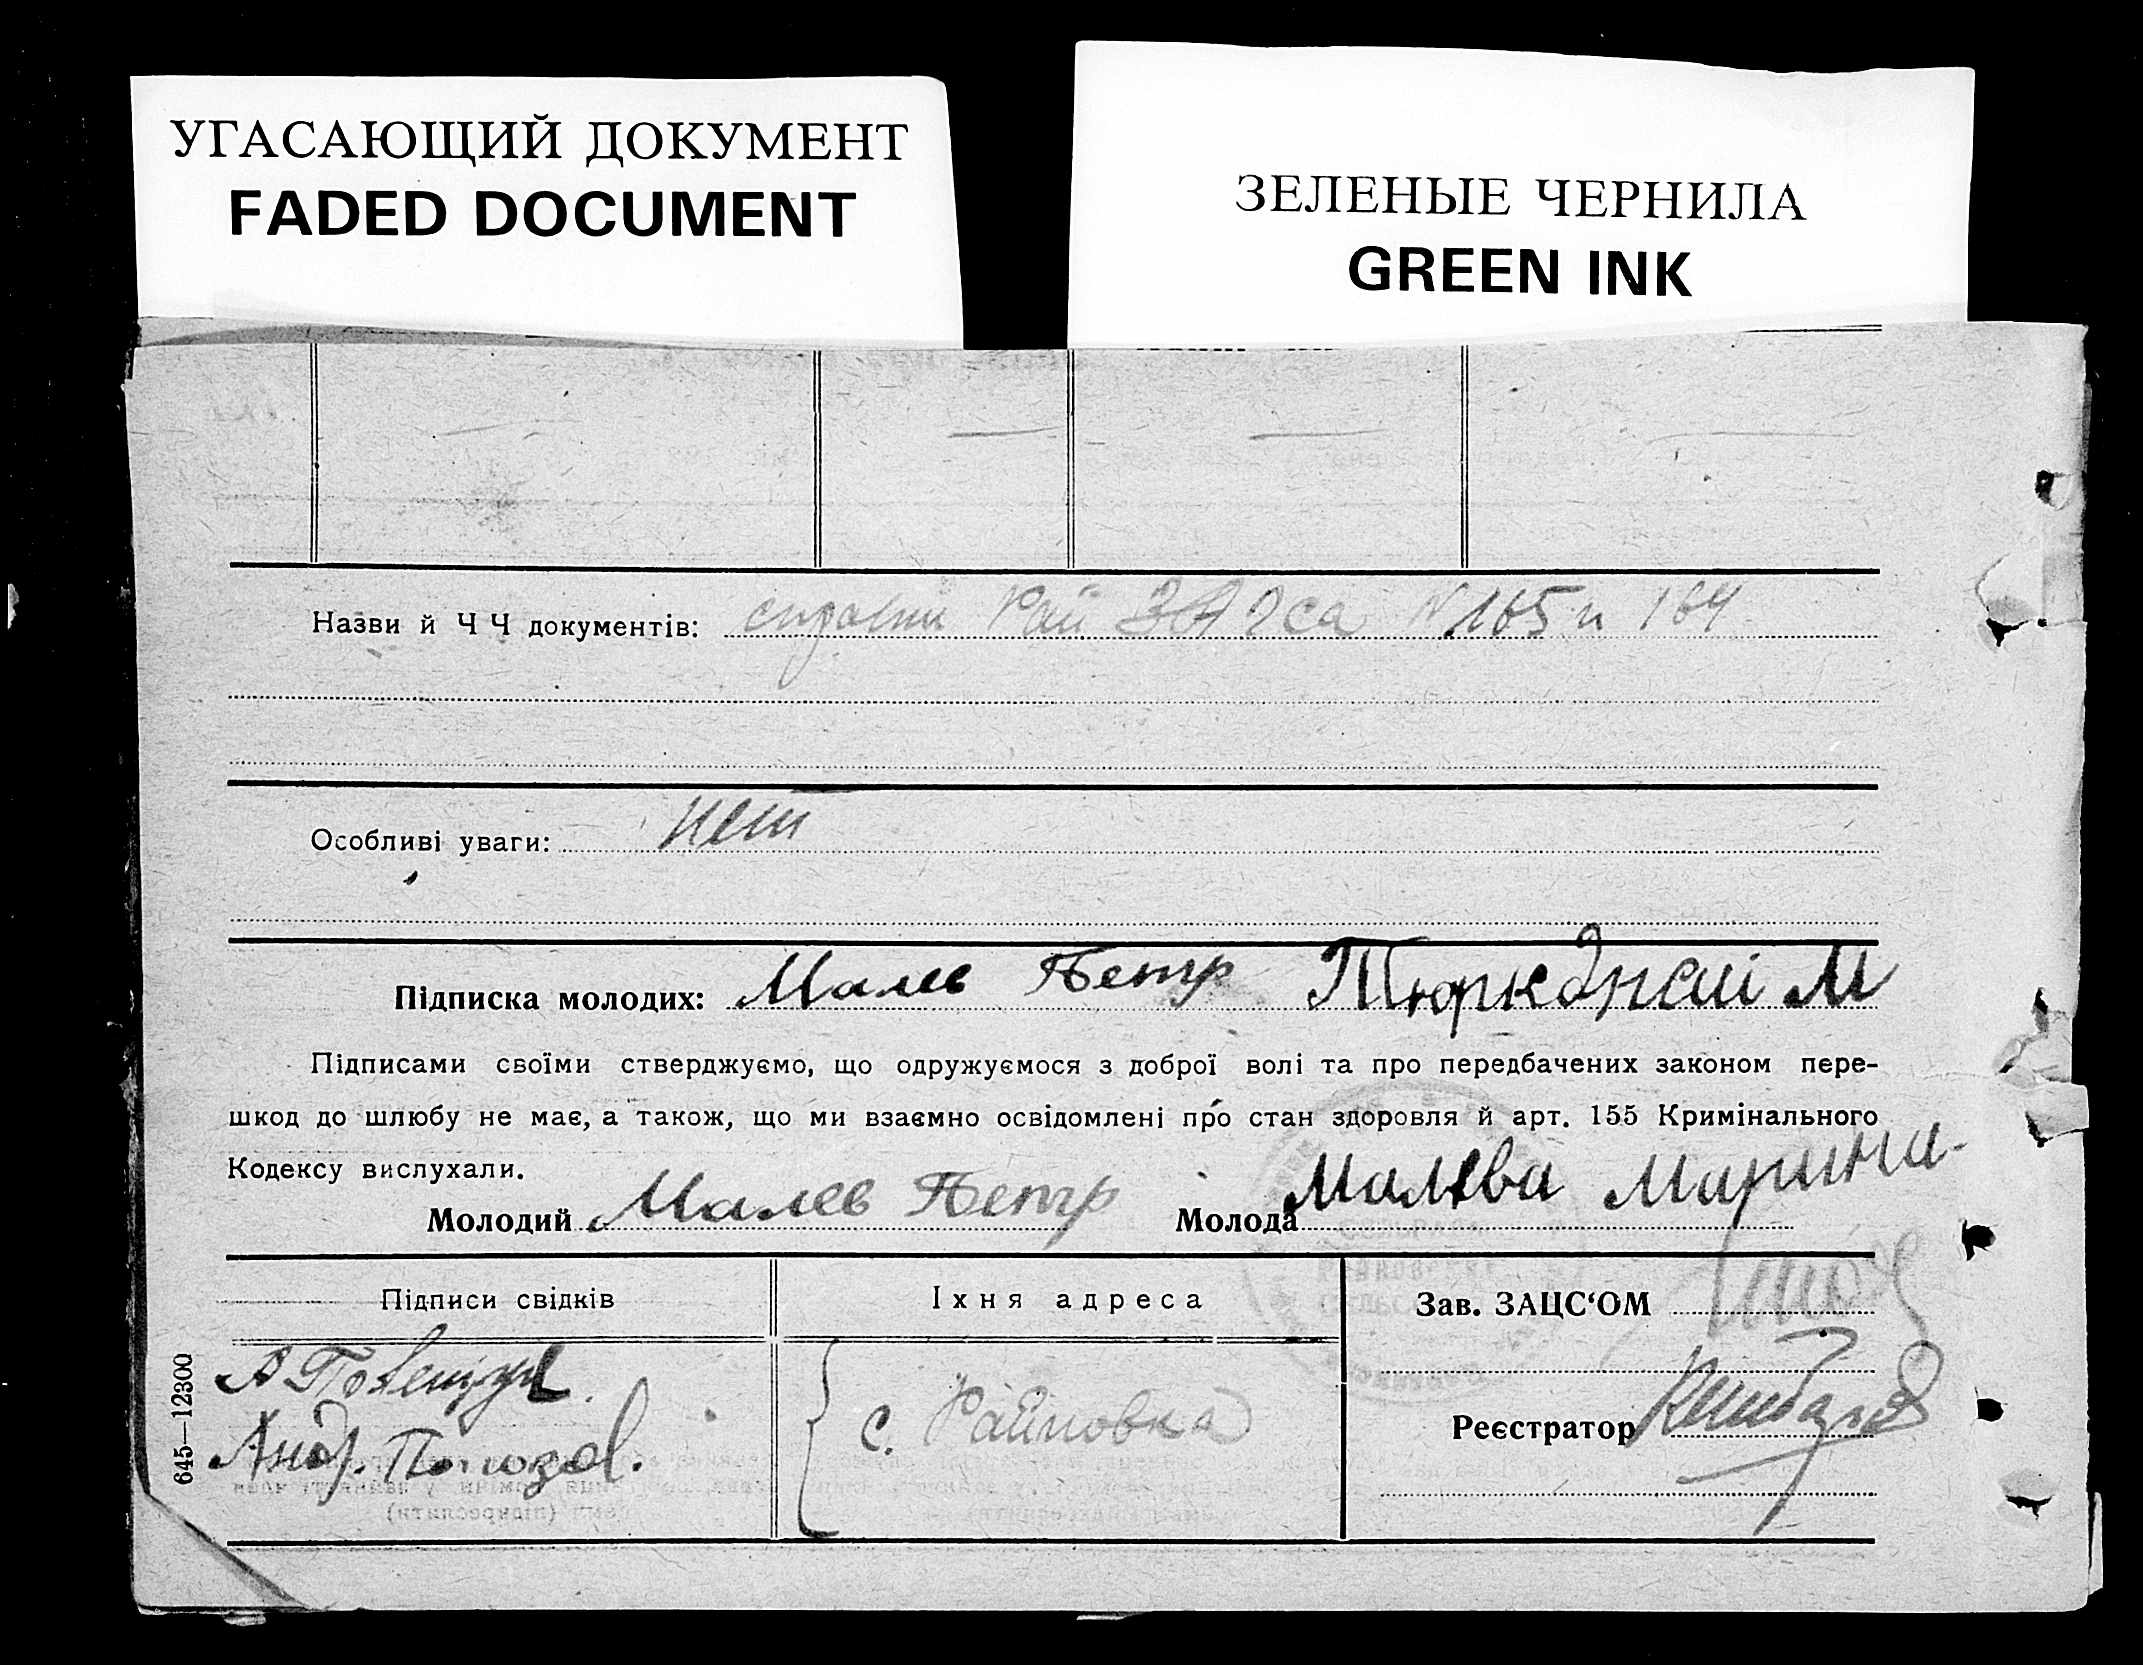 УГАСАЮЩИЙ ДОКУМЕНТ
FADED DOCUMENT
ЗЕЛЕНЫЕ ЧЕРНИЛА
GREEN INK
Назви й Ч Ч документів: справки Рай ЗАГСа N 165 и 164
Особливі уваги: нет
Підписка молодих: Малев Петр М
Підписами своїми стверджуємо, що одружуємося з доброї волі та про передбачених законом пере-
шкод до шлюбу не має, а також, що ми взаємно освідомлені про стан здоровля й арт. 155 Кримінального
Кодексу вислухали.
Молодий Малев Петр Молода Малева Марина
Підписи свідків
Їхня адреса
Зав. ЗАЦС‘ОМ
А
Андр.
с. Райновка
Реєстратор
645—12300